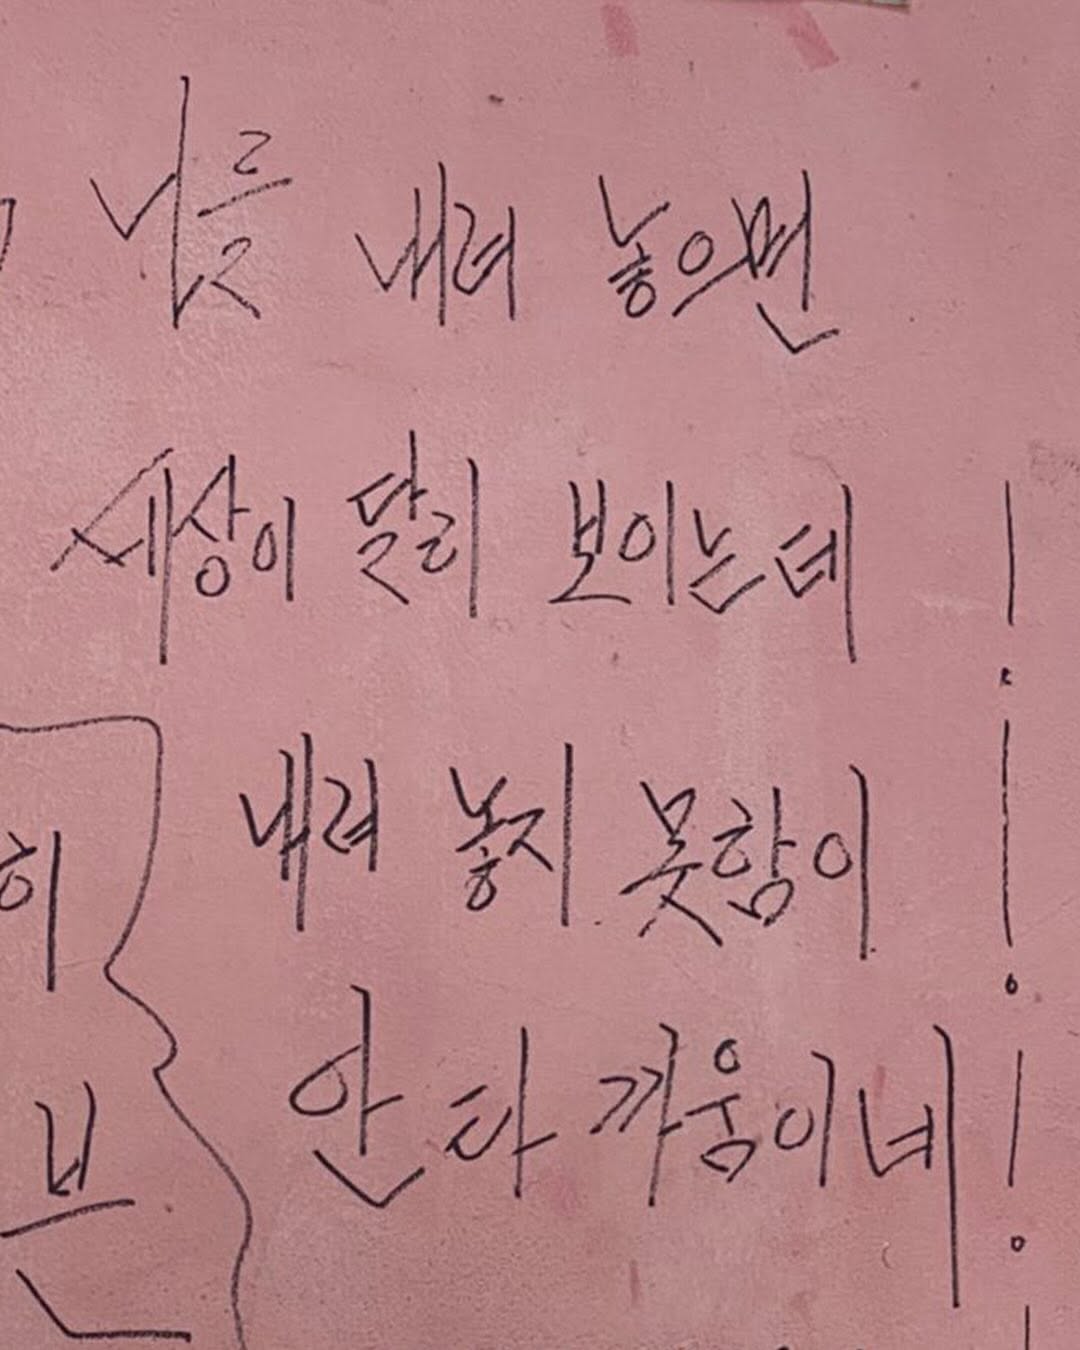 내려 놓으면
세상이 달리 보이는데 !
내려 놓지 못함이 !
안타까움이네 !